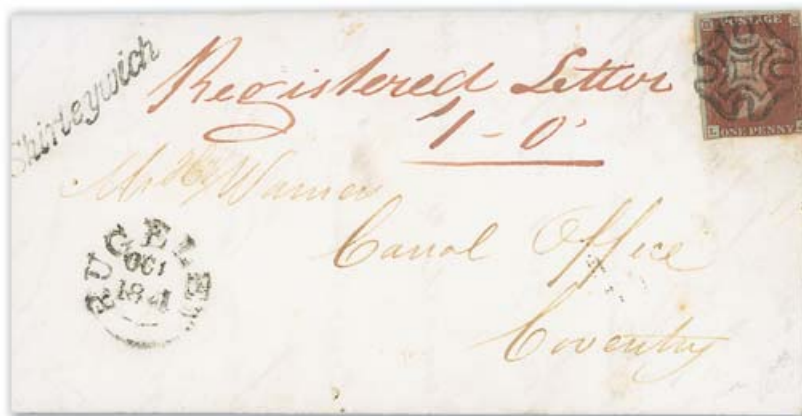 Shirleywich
Registered Letter
1-0
POSTAGE
ONE PENNY
Mr Hy Warner
Canal Office
Coventry
RUGELEY
OC 1
1841